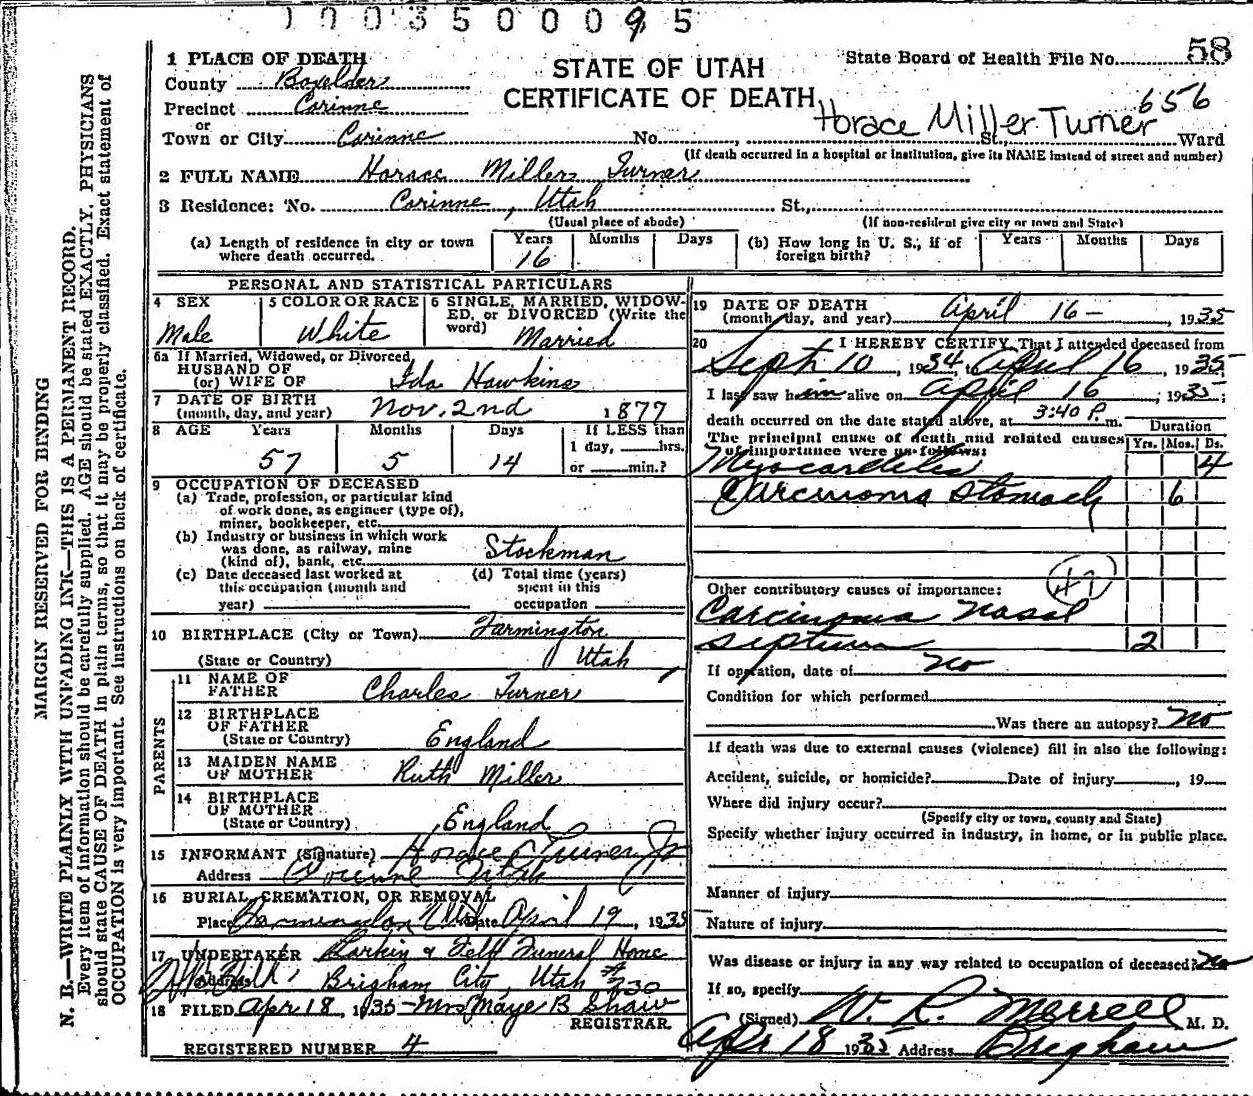 1003500095
MARGIN RESERVED FOR BINDING
N. B.—WRITE PLAINLY WITH UNFADING INK—THIS IS A PERMANENT RECORD.
Every item of information should be carefully supplied. AGE should be stated EXACTLY. PHYSICIANS
should state CAUSE OF DEATH in plain terms, so that it may be properly classified. Exact statement of
OCCUPATION is very important. See instructions on back of certificate.
1 PLACE OF DEATH
County Boxelder
Precinct Corinne
or
Town or City Corinne No. St., Ward
STATE OF UTAH
CERTIFICATE OF DEATH
State Board of Health File No. 58
656
Horace Miller Turner
(If death occurred in a hospital or institution, give its NAME instead of street and number)
2 FULL NAME Horace Miller Turner
3 Residence: No. Corinne, Utah St.,
(Usual place of abode) (If non-resident give city or town and State)
(a) Length of residence in city or town where death occurred. Years 16 Months Days
(b) How long in U. S., if of foreign birth? Years Months Days
PERSONAL AND STATISTICAL PARTICULARS
4 SEX Male
5 COLOR OR RACE White
6 SINGLE, MARRIED, WIDOWED, or DIVORCED (Write the word) Married
6a If Married, Widowed, or Divorced,
HUSBAND OF
(or) WIFE OF Ida Hawkins
7 DATE OF BIRTH
(month, day, and year) Nov. 2nd 1877
8 AGE Years 57 Months 5 Days 14 If LESS than 1 day, hrs. or min.?
9 OCCUPATION OF DECEASED
(a) Trade, profession, or particular kind
of work done, as engineer (type of),
miner, bookkeeper, etc.
(b) Industry or business in which work
was done, as railway, mine
(kind of), bank, etc. Stockman
(c) Date deceased last worked at
this occupation (month and
year)
(d) Total time (years)
spent in this
occupation
10 BIRTHPLACE (City or Town) Farmington
(State or Country) Utah
PARENTS
11 NAME OF
FATHER Charles Turner
12 BIRTHPLACE
OF FATHER
(State or Country) England
13 MAIDEN NAME
OF MOTHER Ruth Miller
14 BIRTHPLACE
OF MOTHER
(State or Country) England
15 INFORMANT (Signature) Horace Turner Jr
Address Corinne Utah
16 BURIAL, CREMATION, OR REMOVAL
Place Farmington Utah Date April 19, 1935
17 UNDERTAKER Larkin & Felt Funeral Home
Address Brigham City, Utah #230
18 FILED Apr 18, 1935 Mrs Maye B Shaw
REGISTRAR
REGISTERED NUMBER 4
19 DATE OF DEATH
(month, day, and year) April 16 - , 1935
20 I HEREBY CERTIFY, That I attended deceased from
Sept 10, 1934, to April 16, 1935.
I last saw him alive on April 16, 1935;
death occurred on the date stated above, at 3:40 P. m.
The principal cause of death and related causes
of importance were as follows:
Duration
Yrs. Mos. Ds.
Myocardites 4
Carcinoma Stomach 6
Other contributory causes of importance:
Carcinoma nasal
septum 2
If operation, date of no
Condition for which performed
Was there an autopsy? no
If death was due to external causes (violence) fill in also the following:
Accident, suicide, or homicide? Date of injury , 19
Where did injury occur?
(Specify city or town, county and State)
Specify whether injury occurred in industry, in home, or in public place.
Manner of injury
Nature of injury
Was disease or injury in any way related to occupation of deceased? no
If so, specify
(Signed) W. R. Merrell M. D.
Apr 18 1935 Address Brigham